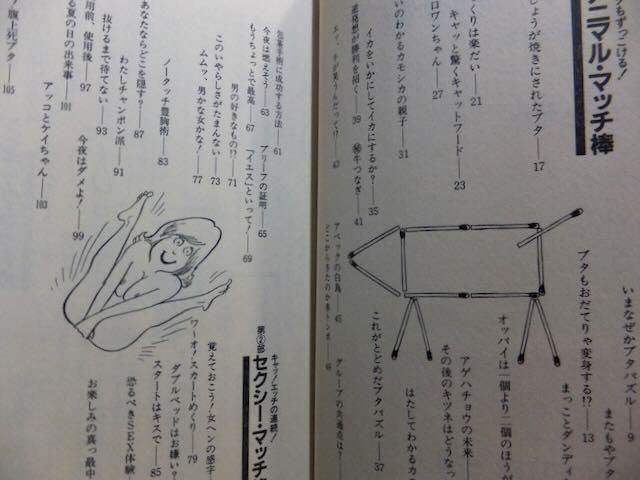 もずっこける!
ニマル・マッチ棒
いまなぜかブタパズル——9
またもやブタ
ブタもおだてりゃ変身する!?——13
まっことダンディ
じょうが焼きにされたブタ——17
オッパイは一個より二個のほうが
くりは楽だい——21
アゲハチョウの未来——
キャッと驚くキャットフード——23
その後のキツネはどうなっ
ロワンちゃん——27
はたしてわかるカ
いのわかるカモシカの親子——31
イカをいかにしてイカにするか?——35
これがとどめだブタパズル——37
逆発想が勝利を招く——39
㊙牛つなぎ——41
え、手が笑うんだって!?——43
アベックの白鳥——45
どこからきたのか赤トンボ——49
グループの共通点は?——
キャッ!エッチの連続!
第②部 セクシー・マッチ
包茎手術に成功する方法——61
今夜は燃えそう——63
ブリーフの証明——65
もうちょっとで最高——67
「イエス」といって!——69
男の好きなもの!?——71
このいやらしさがたまんない——73
ムムッ、男かな女かな?——77
覚えておこう!女ヘンの感字
ワーオ!スカートめくり——79
ノータッチ豊胸術——83
ダブルベッドはお嫌い?
スタートはキスで——85
あなたならどこを隠す?——87
恐るべきSEX体験
わたしチャンポン派——91
お楽しみの真っ最中
抜けるまで待てない——93
用前、使用後——97
今夜はダメよ!——99
る夏の日の出来事——101
アッコとケイちゃん——103
腹上死ブタ——105